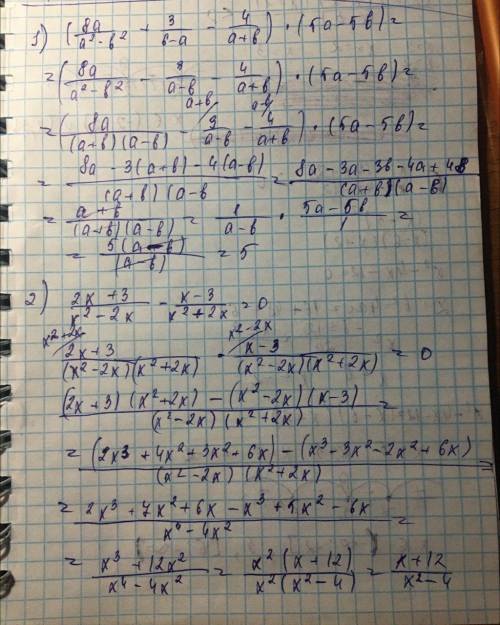 1) (8a/(a²-b²) + 3/(b-a) - 4/(a+b)) · (5a-5b)=
=(8a/(a²-b²) - 3/(a-b) - 4/(a+b)) · (5a-5b)=
a+b a-b
=(8a/((a+b)(a-b)) - 3/(a-b) - 4/(a+b)) · (5a-5b)=
= (8a - 3(a+b) - 4(a-b))/((a+b)(a-b) = (8a-3a-3b-4a+4b)/((a+b)(a-b))
= (a+b)/((a+b)(a-b)) = 1/(a-b) · (5a-5b)/1 =
= 5(a-b)/(a-b) = 5
2) (2x+3)/(x²-2x) - (x-3)/(x²+2x) = 0
x²+2x x²-2x
(2x+3)/((x²-2x)(x²+2x)) - (x-3)/((x²-2x)(x²+2x)) = 0
((2x+3)(x²+2x) - (x²-2x)(x-3))/((x²-2x)(x²+2x)) =
= ((2x³+4x²+3x²+6x) - (x³-3x²-2x²+6x))/((x²-2x)(x²+2x)) =
= (2x³+7x²+6x-x³+5x²-6x)/(x⁴-4x²) =
= (x³+12x²)/(x⁴-4x²) = x²(x+12)/(x²(x²-4)) = (x+12)/(x²-4)